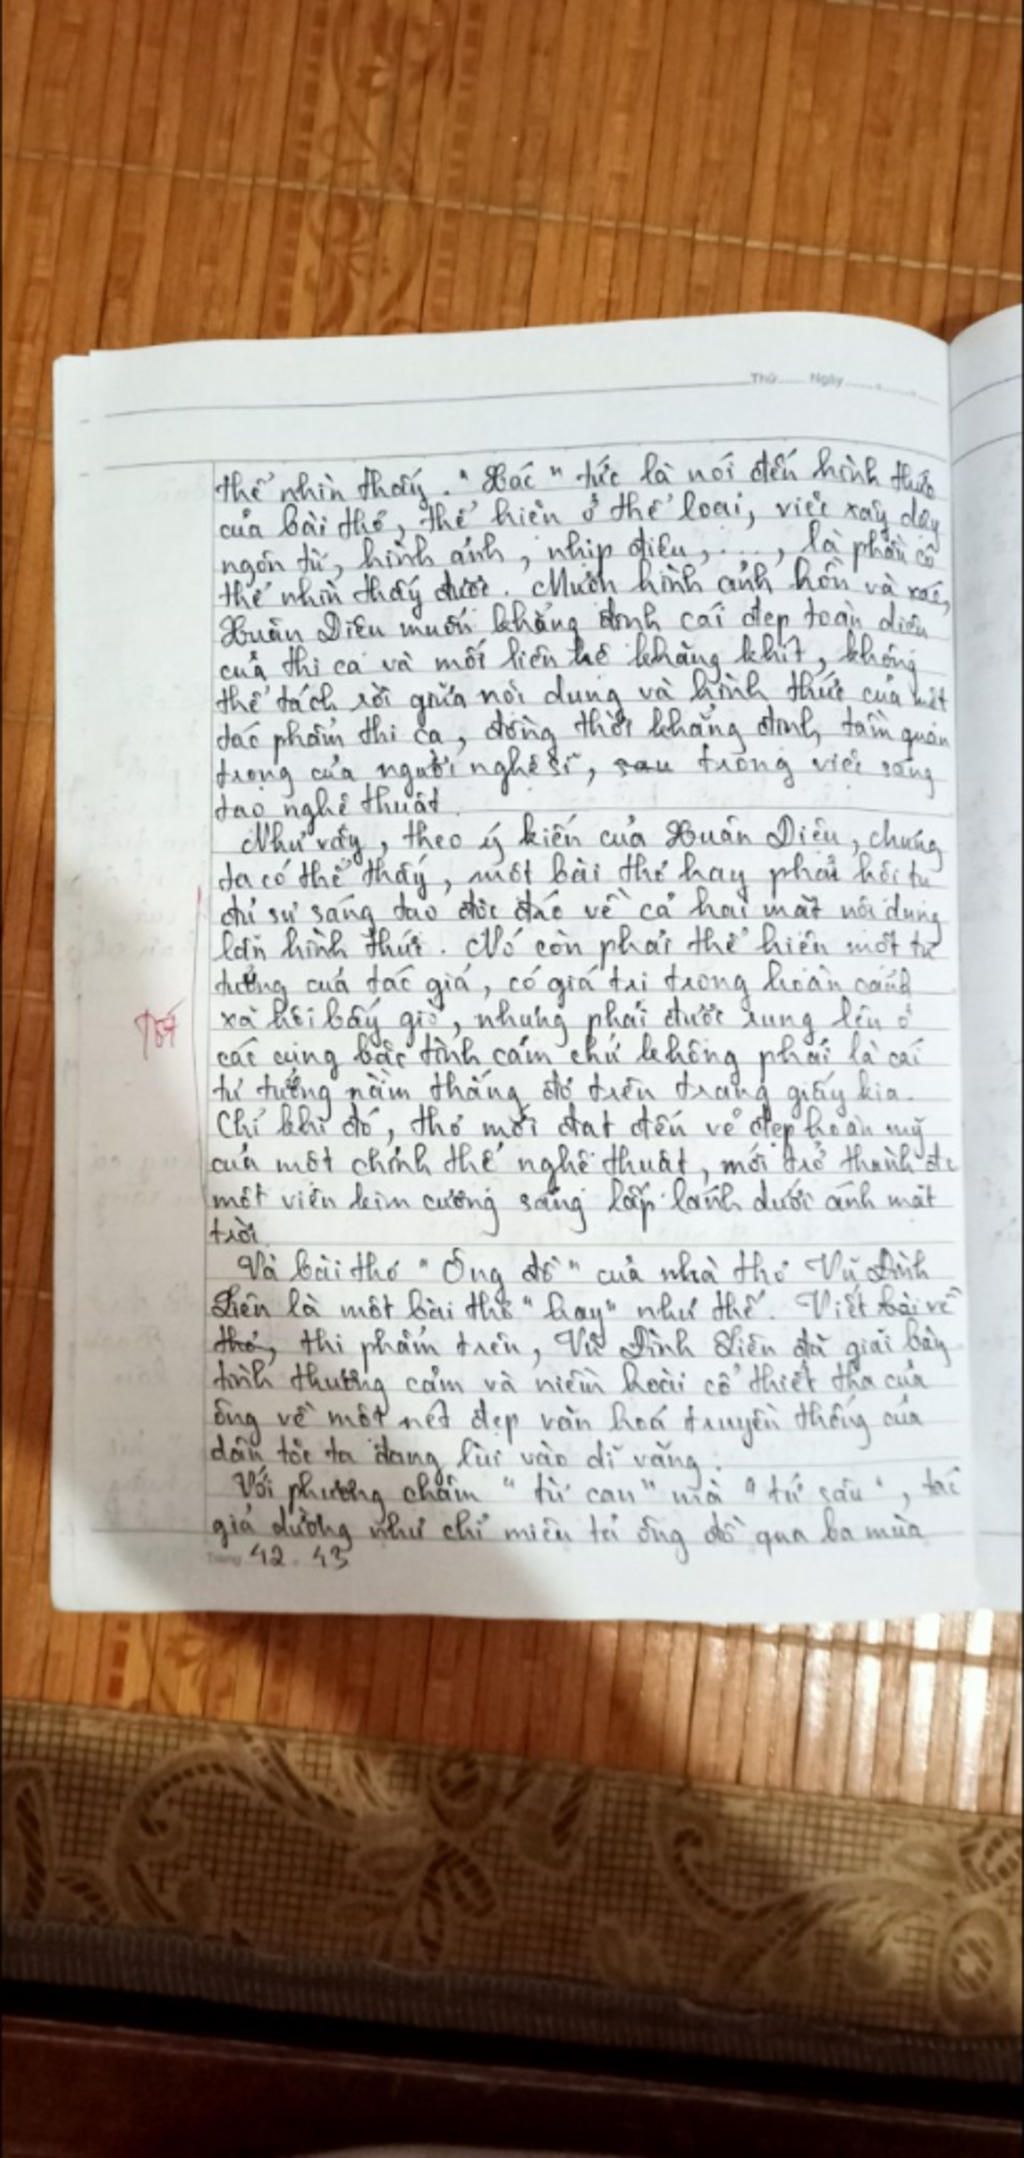 Thứ Ngày
thể nhìn thấy. "Xác" tức là nói đến hình thức
của bài thơ, thể hiện ở thể loại, việc xây dựng
ngôn từ, hình ảnh, nhịp điệu, ..., là phần có
thể nhìn thấy được. Mượn hình ảnh hồn và xác,
Xuân Diệu muốn khẳng định cái đẹp toàn diện
của thi ca và mối liên hệ khăng khít, không
thể tách rời giữa nội dung và hình thức của một
tác phẩm thi ca, đồng thời khẳng định tầm quan
trọng của người nghệ sĩ, sau trong việc sáng
tạo nghệ thuật.
Như vậy, theo ý kiến của Xuân Diệu, chúng
ta có thể thấy, một bài thơ hay phải hội tụ
đủ sự sáng tạo độc đáo về cả hai mặt nội dung
lẫn hình thức. Nó còn phải thể hiện một tư
tưởng của tác giả, có giá trị trong hoàn cảnh
xã hội bấy giờ, nhưng phải được rung lên ở
các cung bậc tình cảm chứ không phải là cái
tư tưởng nằm thẳng đơ trên trang giấy kia.
Chỉ khi đó, thơ mới đạt đến vẻ đẹp hoàn mỹ
của một chỉnh thể nghệ thuật, mới trở thành đc
một viên kim cương sáng lấp lánh dưới ánh mặt
trời.
Và bài thơ "Ông đồ" của nhà thơ Vũ Đình
Liên là một bài thơ "hay" như thế. Viết bài về
thơ, thi phẩm trên, Vũ Đình Liên đã giãi bày
tình thương cảm và niềm hoài cổ thiết tha của
ông về một nét đẹp văn hoá truyền thống của
dân tộc ta đang lùi vào dĩ vãng.
Với phương châm "từ cạn" mà "tứ sâu", tác
giả dường như chỉ miêu tả ông đồ qua ba mùa
Trang 42 43
Tốt